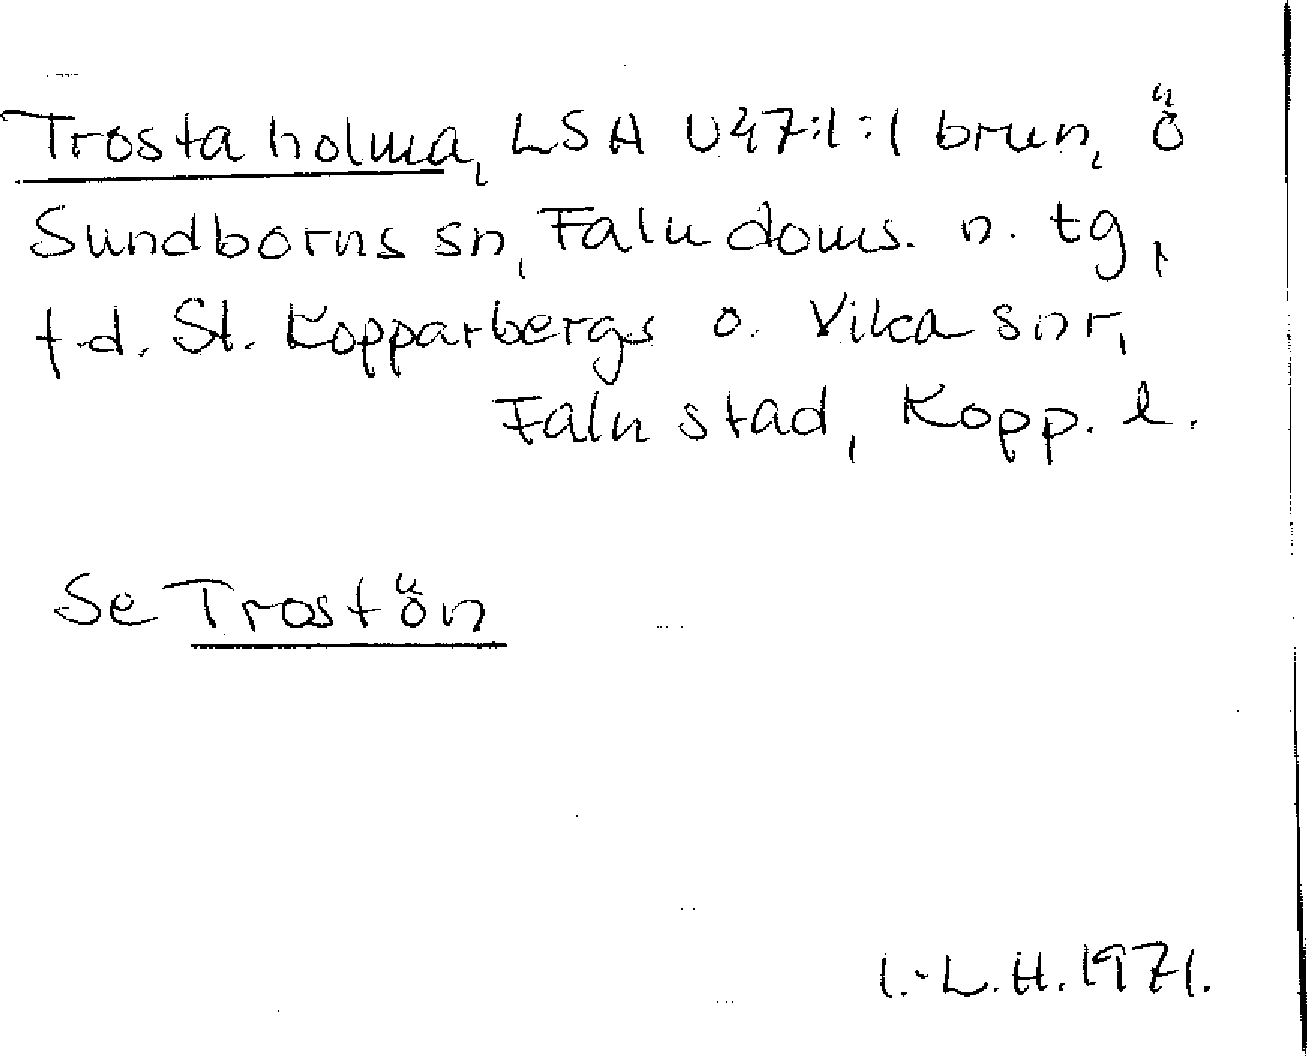 Trosta holma, LSA U47:1:1 brun, ö
Sundborns sn, Falu doms. n. tg,
f.d. St. Kopparbergs o. Vika snr,
Falu stad, Kopp. l.
Se Trostön
I.-L.H. 1971.